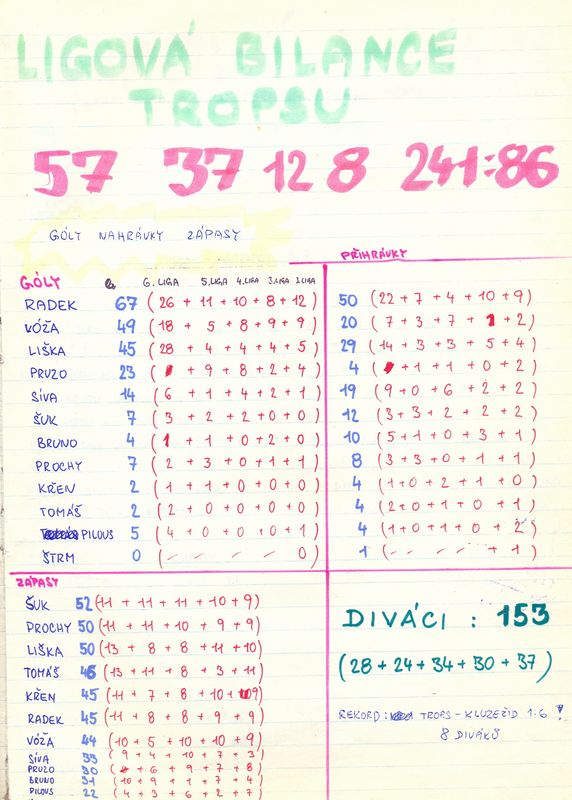 LIGOVÁ BILANCE
TROPSU
57 37 12 8 241:86
GÓLY NAHRÁVKY ZÁPASY
PŘIHRÁVKY
GÓLY 6. LIGA 5. LIGA 4. LIGA 3. LIGA 2. LIGA
RADEK 67 (26 + 11 + 10 + 8 + 12) 50 (22 + 7 + 4 + 10 + 9)
VÓŽA 49 (18 + 5 + 8 + 9 + 9) 20 (7 + 3 + 7 + 1 + 2)
LIŠKA 45 (28 + 4 + 4 + 4 + 5) 29 (14 + 3 + 3 + 5 + 4)
PRUZO 23 ( + 9 + 8 + 2 + 4) 4 ( + 1 + 1 + 0 + 2)
SÍVA 14 (6 + 1 + 4 + 2 + 1) 19 (9 + 0 + 6 + 2 + 2)
ŠUK 7 (3 + 2 + 2 + 0 + 0) 12 (3 + 3 + 2 + 2 + 2)
BRUNO 4 (1 + 1 + 0 + 2 + 0) 10 (5 + 1 + 0 + 3 + 1)
PROCHY 7 (2 + 3 + 0 + 1 + 1) 8 (3 + 3 + 0 + 1 + 1)
KŘEN 2 (1 + 1 + 0 + 0 + 0) 4 (1 + 0 + 2 + 1 + 0)
TOMÁŠ 2 (2 + 0 + 0 + 0 + 0) 4 (2 + 0 + 1 + 0 + 1)
PILOUS 5 (4 + 0 + 0 + 0 + 1) 4 (1 + 0 + 1 + 0 + 2)
ŠTRM 0 (– – – – 0) 1 (– – – – + 1)
ZÁPASY
ŠUK 52 (11 + 11 + 11 + 10 + 9)
PROCHY 50 (11 + 11 + 10 + 9 + 9)
LIŠKA 50 (13 + 8 + 8 + 11 + 10)
TOMÁŠ 46 (13 + 11 + 8 + 3 + 11)
KŘEN 45 (11 + 7 + 8 + 10 + 9)
RADEK 45 (11 + 8 + 8 + 9 + 9)
VÓŽA 44 (10 + 5 + 10 + 10 + 9)
SÍVA 33 (9 + 4 + 10 + 7 + 3)
PRUZO 30 ( + 6 + 9 + 7 + 8)
BRUNO 31 (10 + 9 + 1 + 7 + 4)
PILOUS 22 (4 + 3 + 6 + 2 + 7)
DIVÁCI : 153
(28 + 24 + 34 + 30 + 37)
REKORD : TROPS – KLUZEŘID 1:6 !
8 DIVÁKŮ